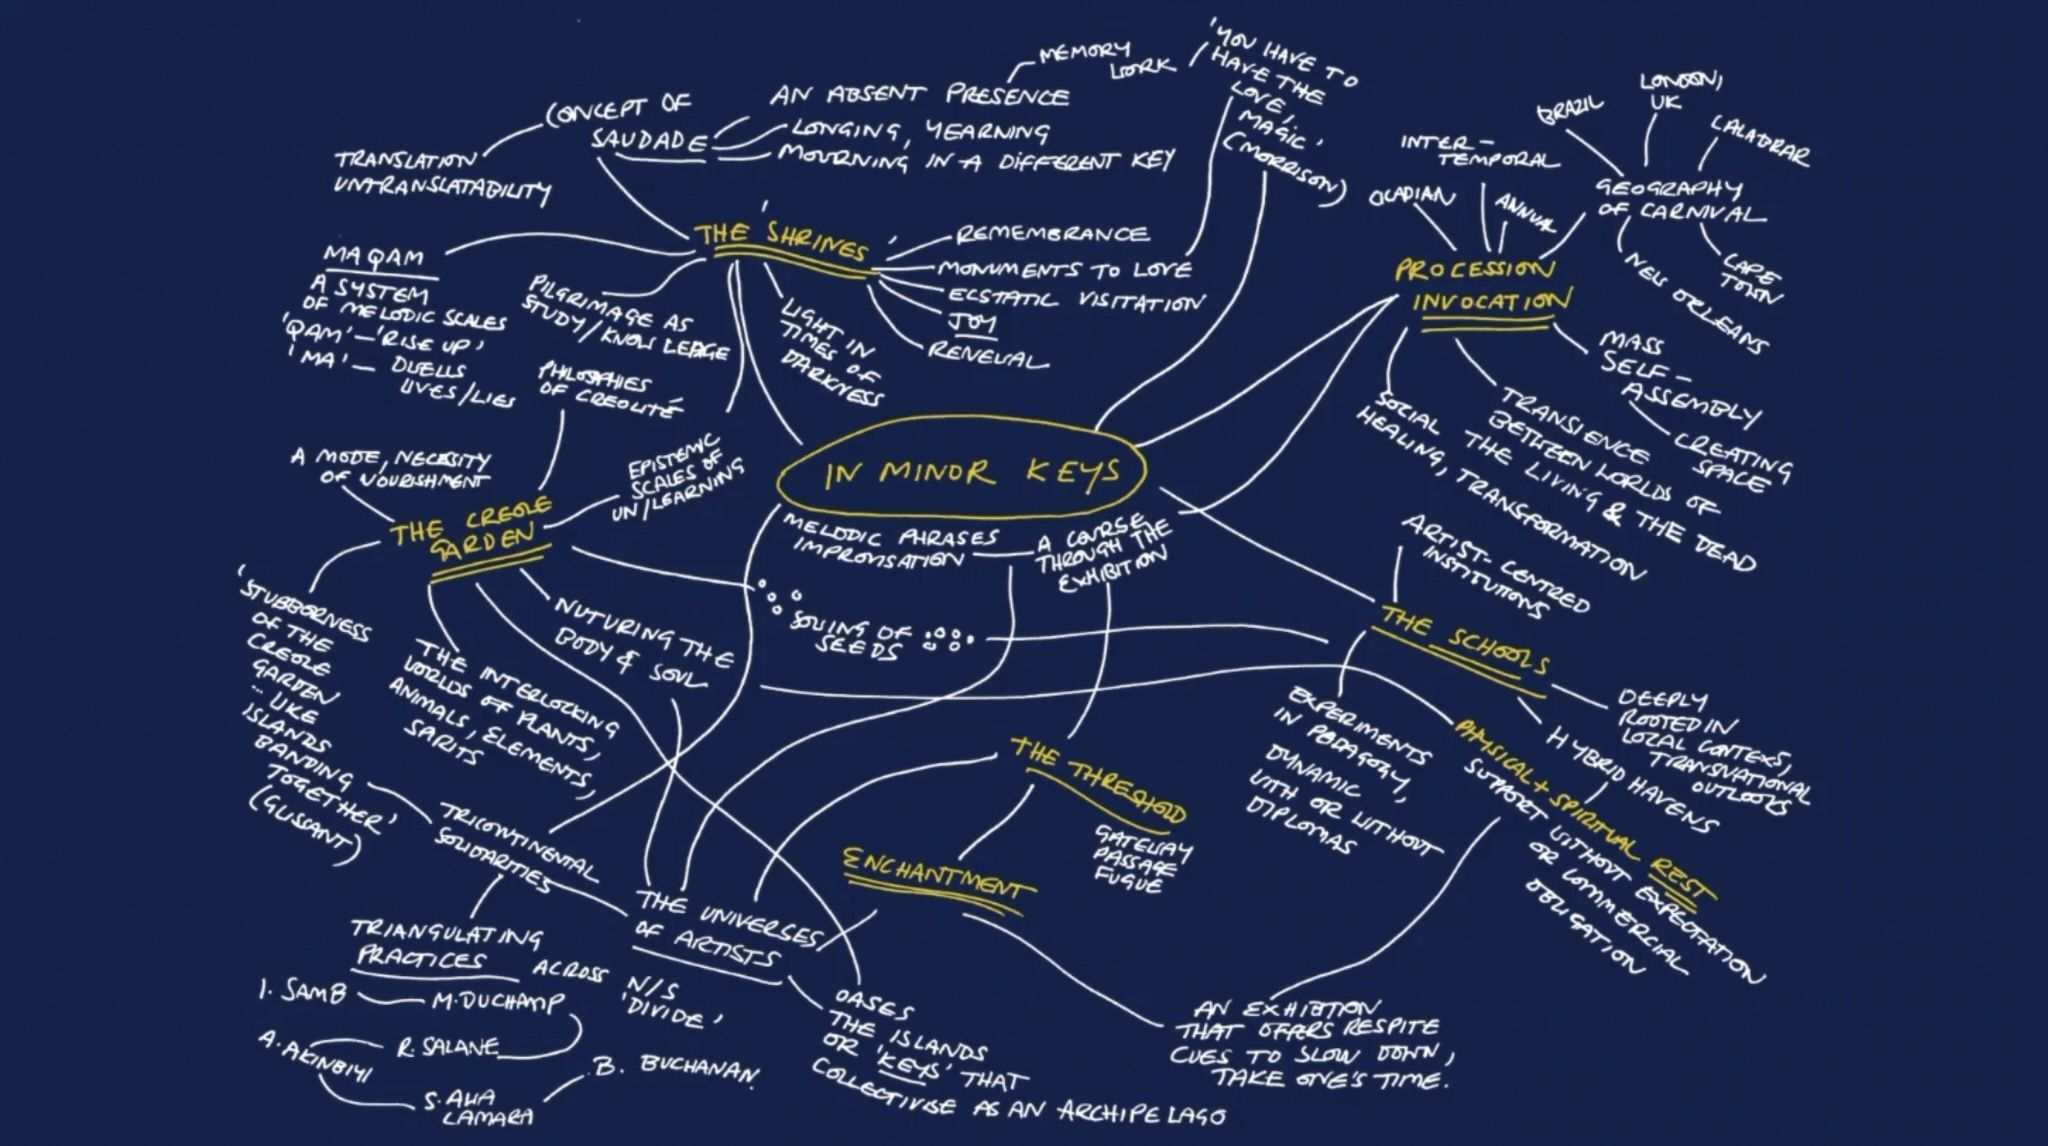 CONCEPT OF
SAUDADE
AN ABSENT PRESENCE
LONGING, YEARNING
MOURNING IN A DIFFERENT KEY
MEMORY
WORK
'YOU HAVE TO
HAVE THE
LOVE,
MAGIC'
(MORRISON)
TRANSLATION
UNTRANSLATABILITY
THE 'SHRINES'
REMEMBRANCE
MONUMENTS TO LOVE
ECSTATIC VISITATION
JOY
RENEWAL
MAQAM
A SYSTEM
OF MELODIC SCALES
'QAM' – 'RISE UP'
'MA' – DWELLS
LIVES/LIES
PILGRIMAGE AS
STUDY/KNOWLEDGE
LIGHT IN
TIMES OF
DARKNESS
PROCESSION
INVOCATION
INTER-
TEMPORAL
ANNUAL
GEOGRAPHY
OF CARNIVAL
BRAZIL
LONDON,
UK
NEW ORLEANS
CAPE
TOWN
MASS
SELF-
ASSEMBLY
CREATING
SPACE
TRANSIENCE
BETWEEN WORLDS OF
THE LIVING & THE DEAD
SOCIAL
HEALING, TRANSFORMATION
IN MINOR KEYS
MELODIC PHRASES
IMPROVISATION
A COURSE
THROUGH THE
EXHIBITION
PHILOSOPHIES
OF CREOLITÉ
A MODE, NECESSITY
OF NOURISHMENT
EPISTEMIC
SCALES OF
UN/LEARNING
THE CREOLE
GARDEN
'STUBBORNESS
OF THE
CREOLE
GARDEN
... LIKE
ISLANDS
BANDING
TOGETHER'
(GLISSANT)
THE INTERLOCKING
WORLDS OF PLANTS,
ANIMALS, ELEMENTS,
NUTURING THE
BODY & SOUL
SOWING OF
SEEDS
THE SCHOOLS
ARTIST-CENTRED
INSTITUTIONS
EXPERIMENTS
IN PEDAGOGY,
DYNAMIC
WITH OR WITHOUT
DIPLOMAS
HYBRID HAVENS
DEEPLY
ROOTED IN
LOCAL CONTEXTS,
TRANSNATIONAL
OUTLOOKS
PHYSICAL + SPIRITUAL REST
SUPPORT WITHOUT EXPECTATION
OR COMMERCIAL
OBLIGATION
THE THRESHOLD
GATEWAY
PASSAGE
FUGUE
ENCHANTMENT
TRICONTINENTAL
SOLIDARITIES
THE UNIVERSES
OF ARTISTS
TRIANGULATING
PRACTICES ACROSS N/S
'DIVIDE'
I. SAMB
M. DUCHAMP
A. AKINBIYI
R. SALANE
S. AWA
CAMARA
B. BUCHANAN
OASES
THE ISLANDS
OR 'KEYS' THAT
COLLECTIVISE AS AN ARCHIPELAGO
AN EXHIBITION
THAT OFFERS RESPITE
CUES TO SLOW DOWN,
TAKE ONE'S TIME.